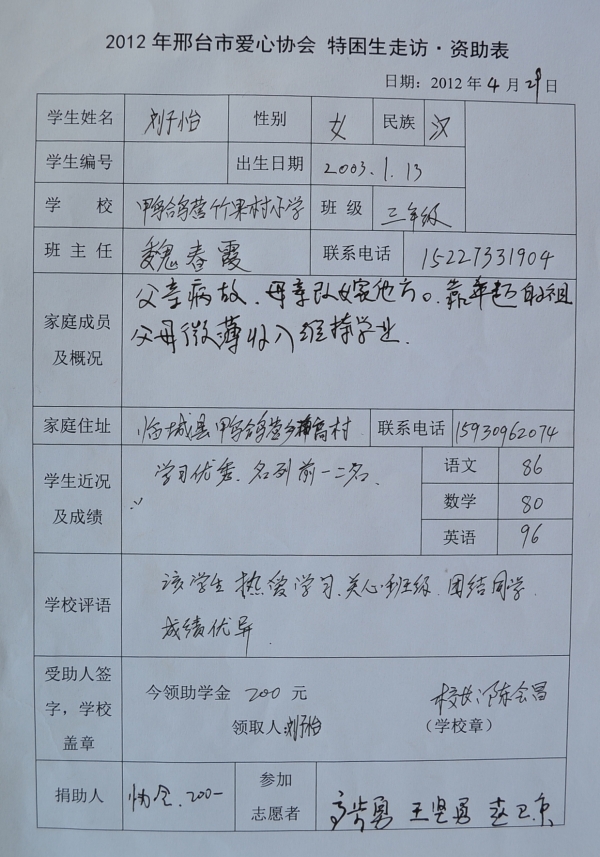 2012 年邢台市爱心协会 特困生走访·资助表
日期：2012 年 4 月 29 日
学生姓名 刘子怡 性别 女 民族 汉
学生编号 出生日期 2003.1.13
学 校 鸭鸽营竹果村小学 班 级 三年级
班 主 任 魏春霞 联系电话 15227331904
家庭成员及概况 父亲病故、母亲改嫁他方。靠年迈的祖
父母微薄收入维持学业.
家庭住址 临城县鸭鸽营乡 村 联系电话 15930962074
学生近况及成绩 学习优秀、名列前一二名.
语文 86
数学 80
英语 96
学校评语 该学生热爱学习、关心班级、团结同学.
成绩优异.
受助人签字，学校盖章 今领助学金 200 元 校长：陈会昌
领取人：刘子怡 （学校章）
捐助人 协会.200- 参加志愿者 勇 王坚勇 赵卫